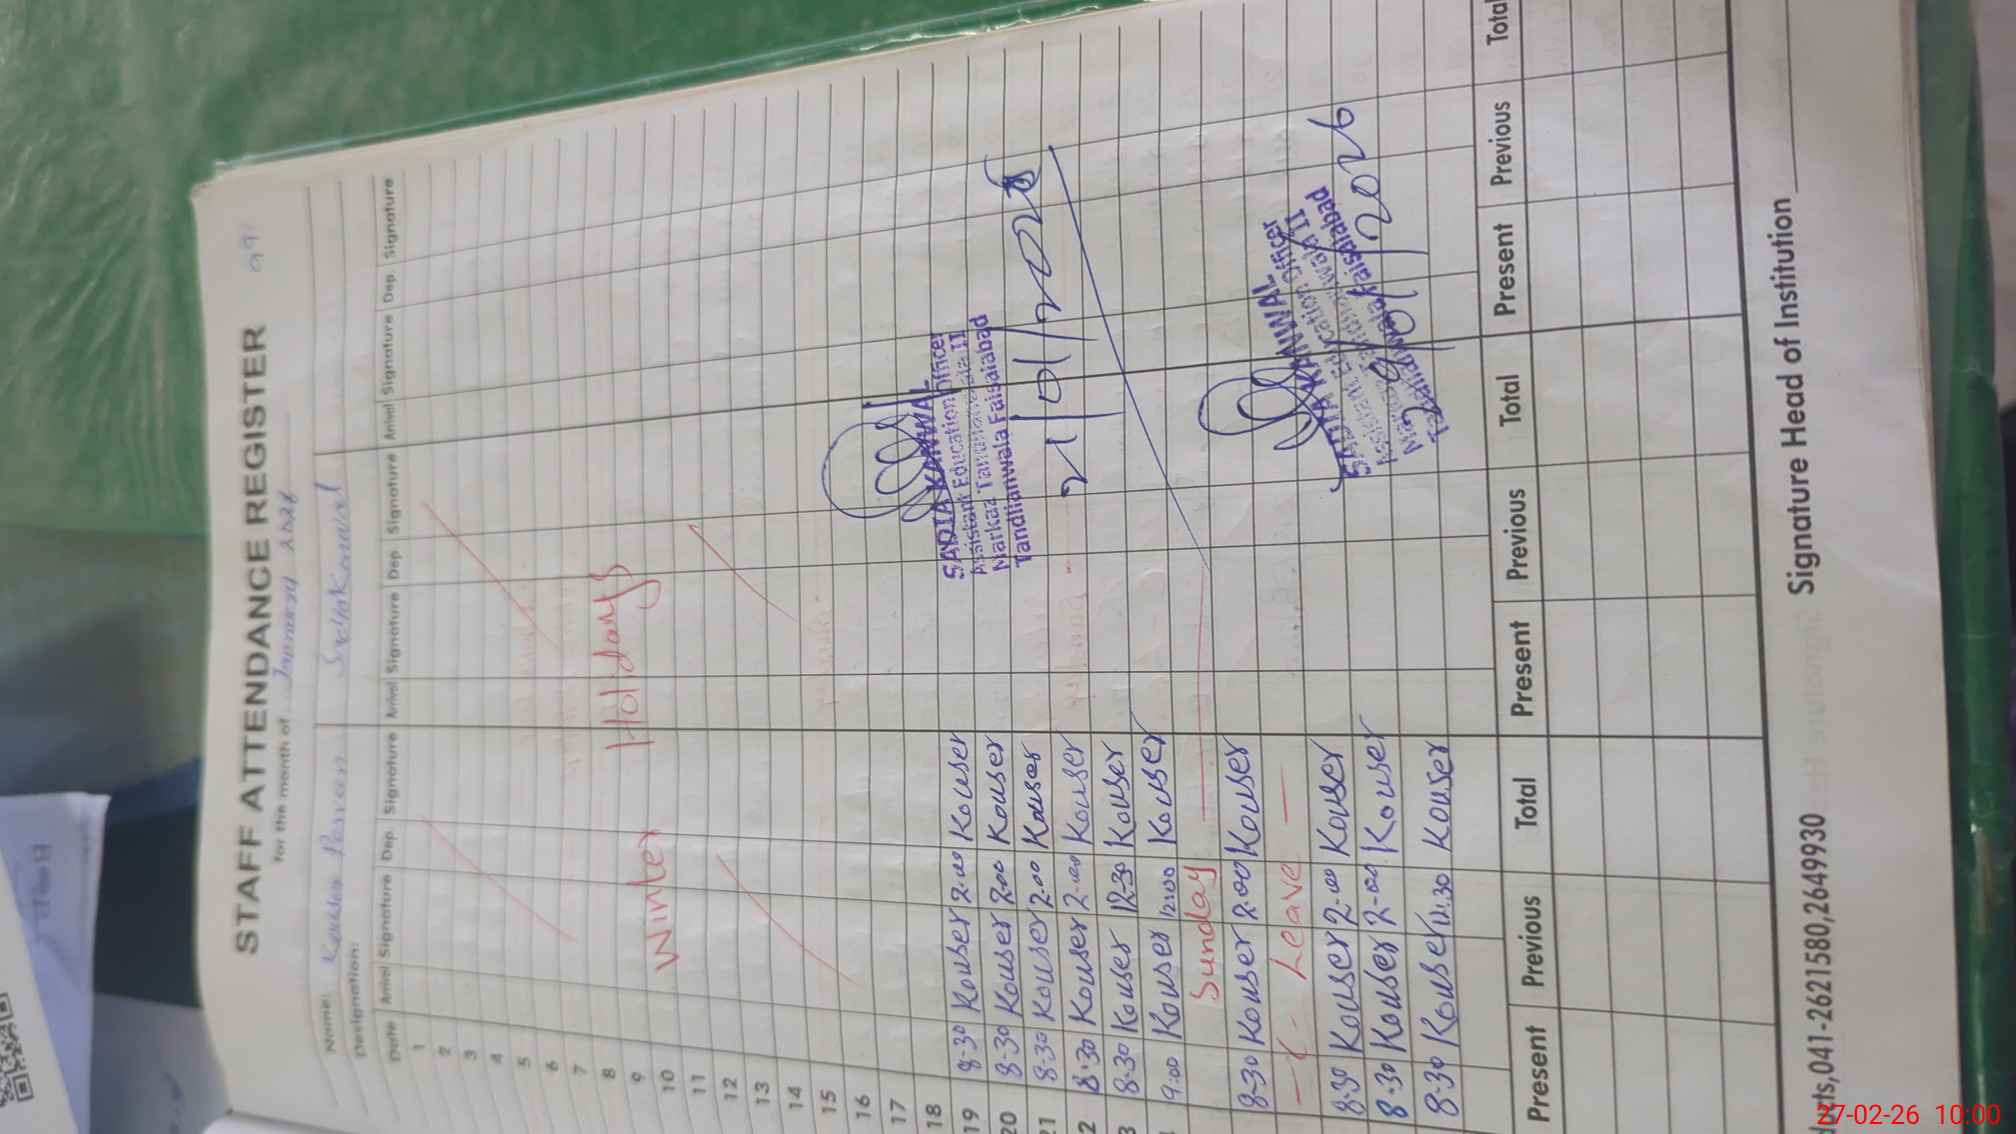 STAFF ATTENDANCE REGISTER
for the month of January 2026
Name: Kouser Perveen Sadia Kanwal
Designation:
Date Arrival Signature Dep. Signature Arrival Signature Dep. Signature Arrival Signature Dep. Signature
1
2
3
4
5
6
7
8
9
Winter Holidays
10
11
12
13
14
15
16
17
18
19 8-30 Kouser 2-00 Kouser
20 8-30 Kouser 2-00 Kouser
21 8-30 Kouser 2-00 Kouser
2 8-30 Kouser 2-00 Kouser
3 8-30 Kouser 12-30 Kouser
9:00 Kouser 12:00 Kouser
Sunday
8-30 Kouser 2-00 Kouser
Leave
8-30 Kouser 2-00 Kouser
8-30 Kouser 2-00 Kouser
8-30 Kouser 11.30 Kouser
SADIA KANWAL
Assistant Education Officer
Markaz Tandlianwala II
Tandlianwala Faisalabad
21/01/2026
SADIA KANWAL
Assistant Education Officer
Markaz Tandlianwala II
Tandlianwala Faisalabad
29/01/2026
Present Previous Total Present Previous Total Present Previous Total
041-2621580,2649930 Signature Head of Institution
27-02-26 10:00